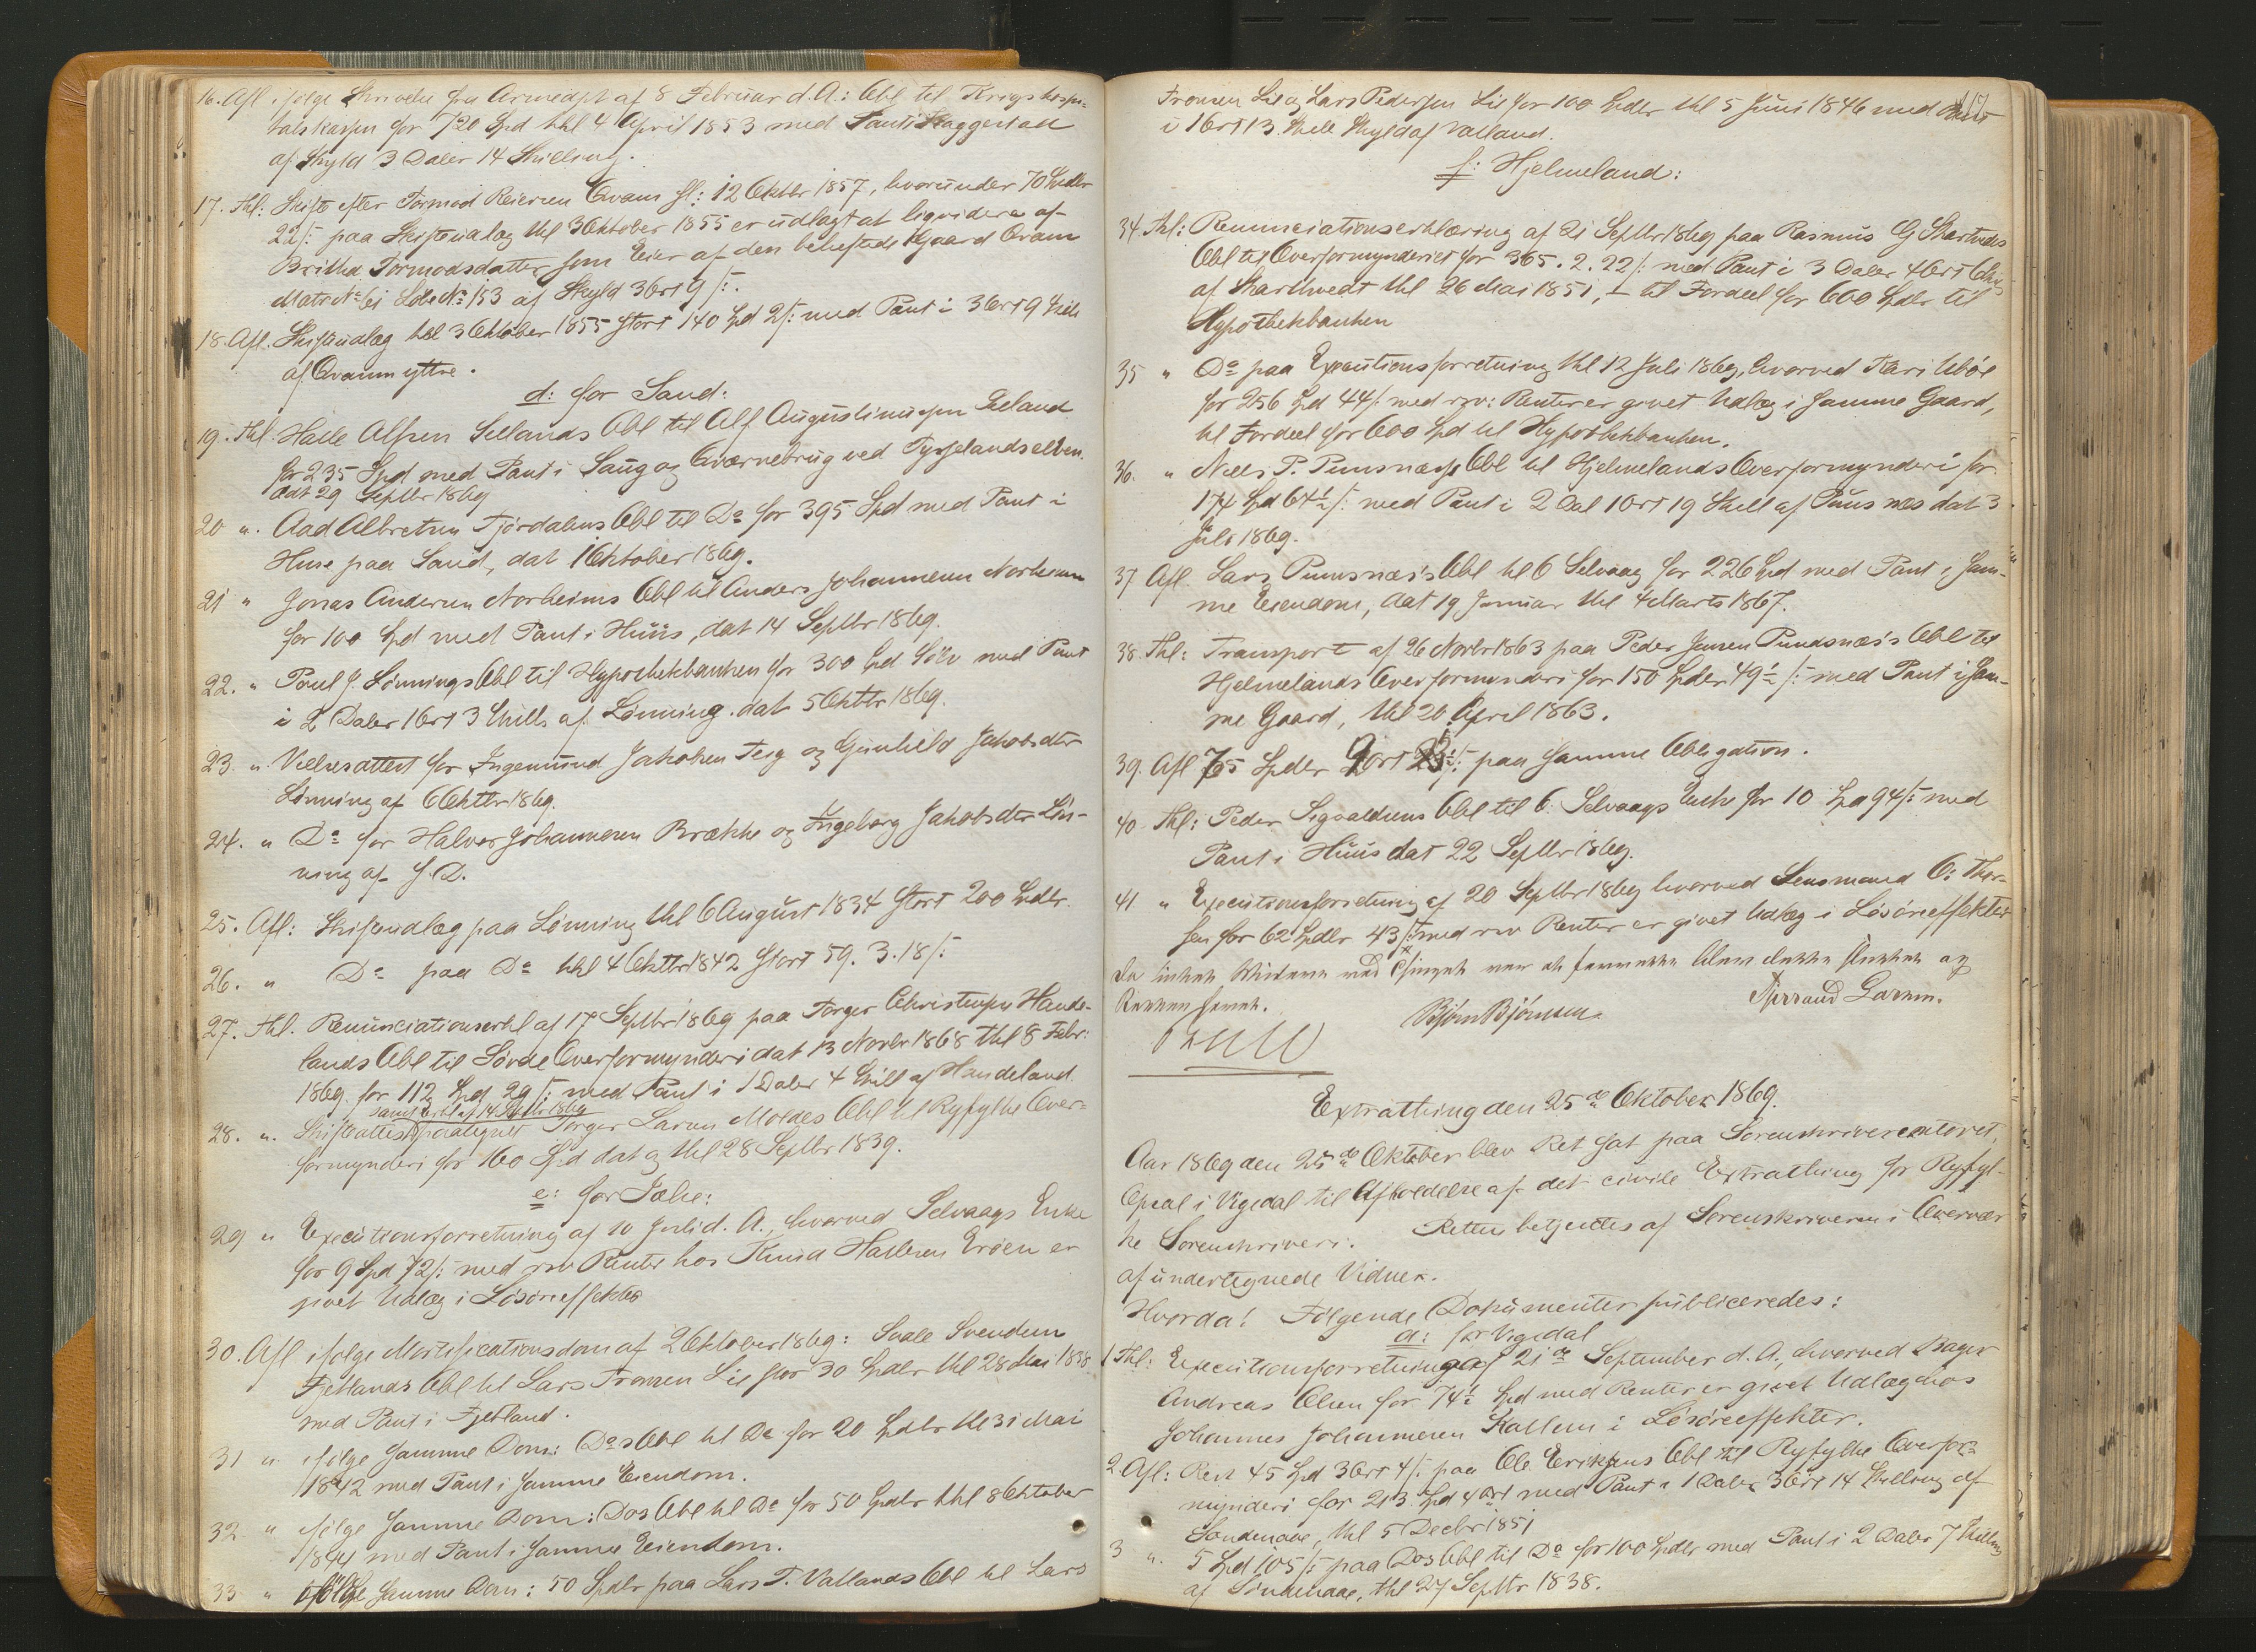 16. Afl ifølge Skrivelse fra Armedpt af 8 Februar d. A.: Obl til Krigshospi-
talskassen for 720 Spd thl 4 April 1853 med Pant i Haggestad
af Skyld 3 Daler 14 Skilling.
17. Thl: Skifte efter Tormod Reiersen Qvam sl: 12 Oktbr 1857, hvorunder 70 Spdlr
22 s: paa Skifteudlæg thl 3 Oktober 1855 er udlagt at liqvidere af
Britha Tormodsdatter som Eier af den beheftede Gaard Qvam
Matr No 61 Løbe No 153 af Skyld 3 Ort 9 s:.
18. Afl. Skifteudlæg thl 3 Oktober 1855 stort 140 Spd 2 s: med Pant i 3 Ort 9 Skill
af Qvamm yttre.
d: for Sand:
19. Thl. Halle Alfsen Sellands Obl til Alf Augustinussen Eeland
for 235 Spd med Pant i Saug og Qværnebrug ved Tysselandselven.
dat 29 Septbr 1869
20 " Aad Albretsen Fjørdahns Obl til Do for 395 Spd med Pant i
Huse paa Sand, dat 1 Oktober 1869.
21 " Jonas Andersen Norheims Obl til Anders Johannesen Norheim
for 100 Spd med Pant i Huus, dat 14 Septbr 1869.
22. " Poul J. Lønnings Obl til Hypothekbanken for 300 Spd Sølv med Pant
i 2 Daler 1 Ort 3 Skill. af Lønning. dat 5 Oktbr 1869.
23. " Vielsesattest for Ingemund Jakobsen Teig og Gunhild Jakobsdtr
Lønning af 6 Oktbr 1869.
24. " Do for Halvor Johannesen Brække og Ingeborg Jakobsdtr Løn-
ning af S. D.
25. Afl: Skifteudlæg paa Lønning thl 6 August 1834 stort 200 Spdlr.
26. " Do paa Do thl 4 Oktbr 1842 stort 59. 3. 18 s:
27. Thl. Renunciationserkl af 17 Septbr 1869 paa Torger Christensen Hande-
lands Obl til Sovde Overformynderi dat 13 Novbr 1868 thl 8 Febr:
1869 for 112 Spd 29 s: med Pant i 1 Daler 4 Skill af Handeland.
samt erkl af 14 Oktbr 1869
28. " Skifteattest paategnet Torger Larsen Moldes Obl til Ryfylke Over-
formynderi for 160 Spd dat og thl 28 Septbr 1839.
e: for Jælse:
29 " Executionsforretning af 10 Juli d. A., hvorved Selvaags Enke
for 9 Spd 72 s: med rsv Renter hos Knud Hallesen Erøen er
givet Udlæg i Løsøreeffekter
30. Afl ifølge Mortificationsdom af 2 Oktober 1869: Svale Svendsen
Fjetlands Obl til Lars Tronsen Lie for 30 Spdlr thl 28 Mai 1838
med Pant i Fjetland.
31 " ifølge samme Dom: Dos Obl til Do for 20 Spdlr thl 31 Mai
1842 med Pant i samme Eiendom.
32. " ifølge samme Dom: Dos Obl til Do for 50 Spdlr thl 8 Oktober
1844 med Pant i samme Eiendom.
33 " ifølge samme Dom: 50 Spdlr paa Lars T. Vatlands Obl til Lars
Tronsen Lie og Lars Pedersen Lie for 100 Spdlr thl 5 Juni 1846 med Pant
i 1 Ort 13 Skill Skyld af Vatland.
f: Hjelmeland:
34 Thl: Renunciationserklæring af 21 Septbr 1869 paa Rasmus G Skartvedts
Obl til Overformynderiet for 365. 2. 22 s: med Pant i 3 Daler 4 Ort 6 Skil
af Skarthvedt thl 26 Mai 1851, – til Fordeel for 600 Spdlr til
Hypothekbanken
35 " Do paa Executionsforretning thl 12 Juli 1869, hvorved Kari Ubøe
for 256 Spd 44 s: med rsv: Renter er givet Udlæg i samme Gaard,
til Fordeel for 600 Spd til Hypothekbanken.
36. " Niels P. Punsnæss Obl til Hjelmelands Overformynderi for
174 Spd 64½ s: med Pant i 2 Dal 1 Ort 19 Skill af Puns næs dat 3
Juli 1869.
37 Afl. Lars Punsnæs's Obl til O Selvaag for 226 Spd med Pant i sam-
me Eiendom, dat 19 Januar thl 4 Marts 1867.
38. Thl: Transport af 26 Novbr 1863 paa Peder Jensen Pundsnæs's Obl til
Hjelmelands Overformynderi for 150 Spdlr 49½ s: med Pant i sam-
me Gaard, thl 20 April 1863.
39. Afl 75 Spdlr 2 Ort s: paa samme Obligation.
40. Thl: Peder Sigvaldsens Obl til O. Selvaags Enke for 10 Spd 94 s: med
Pant i Huus dat 22 Septbr 1869.
41 " Executionsforretning af 20 Septbr 1869 hvorved Lensmand O: Thor-
sen for 62 Spdlr 43 s: med rsv Renter er givet Udlæg i Løsøreeffekter
Da intet Videre ved Thinget var at foretage blev dette sluttet og
Retten hævet.
Bjørn Bjørnsen. Sjurand Larsen.
Extrathing den 25de Oktober 1869.
Aar 1869 den 25de Oktober blev Ret sat paa Sorenskrivercontoret,
Opsal i Vigedal til Afholdelse af det civile Extrathing for Ryfyl-
ke Sorenskriveri. Retten betjentes af Sorenskriveren i Overvær
af undertegnede Vidner.
Hvorda! Følgende Dokumenter publiceredes:
a: for Vigedal
1 Thl: Executionsforretning af 21de September d. A., hvorved Bager
Andreas Olsen for 74½ Spd med Renter er givet Udlæg hos
Johannes Johannesen Kallem i Løsøreeffekter.
2. Afl: Rest 45 Spd 3 Ort 4 s: paa Ole Eriksens Obl til Ryfylke Overfor-
mynderi for 213 Spd 4 Ort med Pant i 1 Daler 3 Ort 14 Skilling af
Søndenaae, thl 5 Decbr 1851
3 " 5 Spd 105 s: paa Dos Obl til Do for 100 Spdlr med Pant i 2 Daler 7 Skilling
af Søndenaae, thl 27 Septbr 1838.